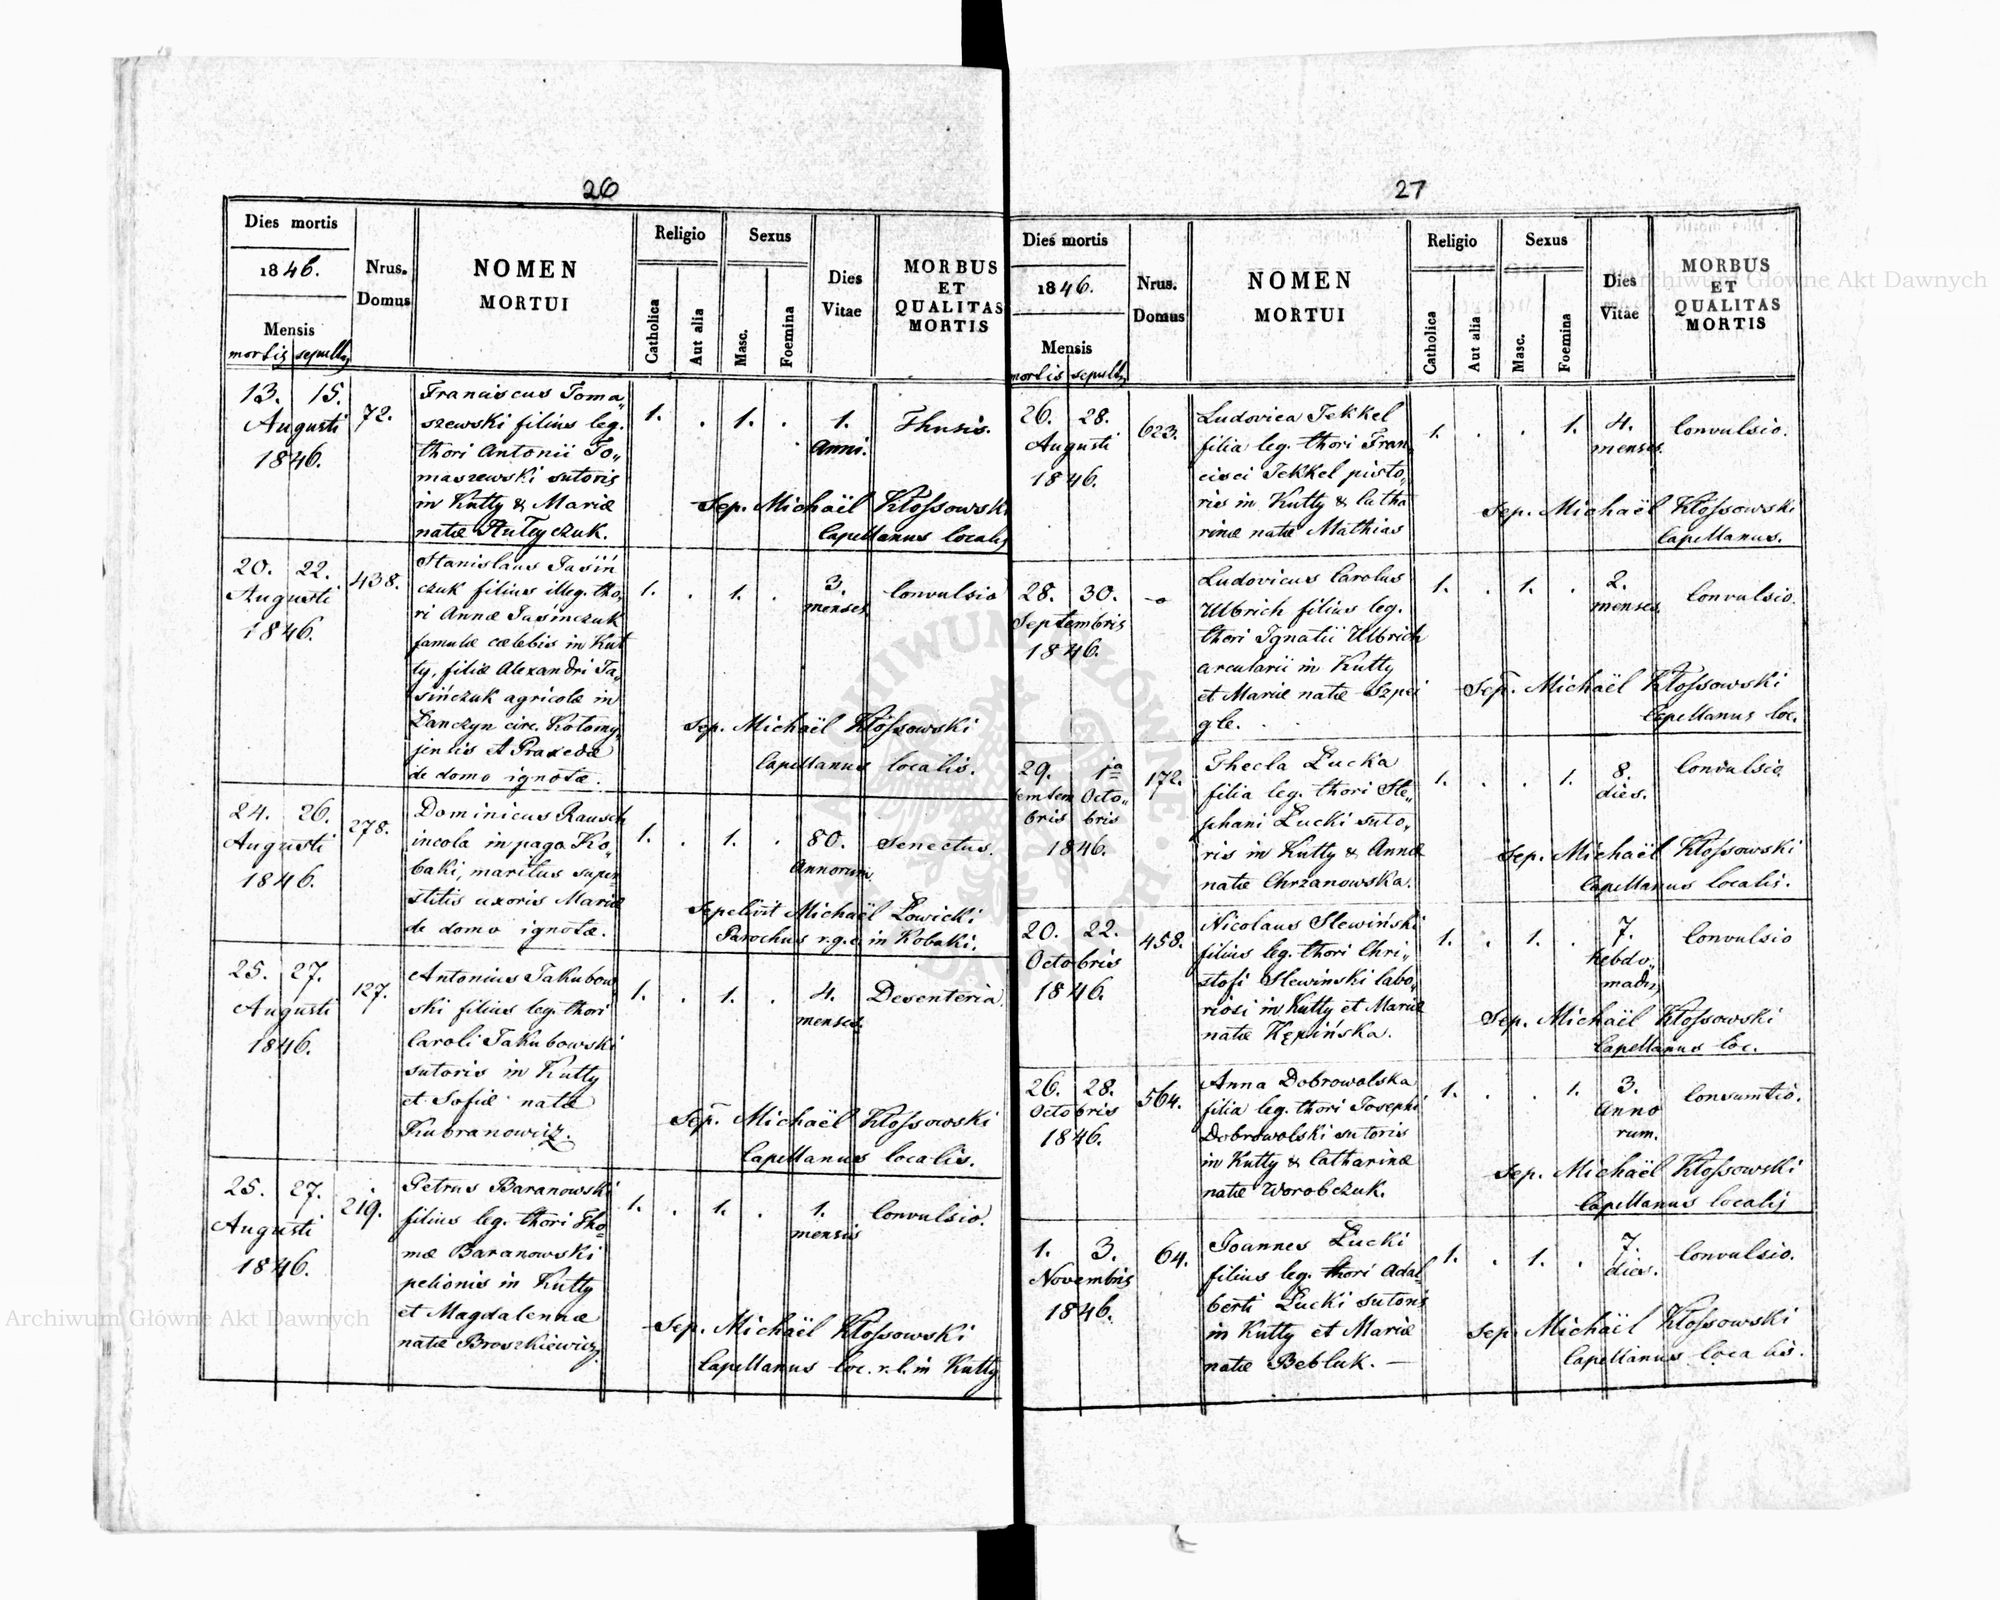 26
Dies mortis
1846.
Mensis
mortis sepult
Nrus.
Domus
NOMEN
MORTUI
Religio
Catholica
Aut alia
Sexus
Masc.
Foemina
Dies
Vitae
MORBUS
ET
QUALITAS
MORTIS
13. 15.
Augusti
1846.
72.
Franciscus Toma„
szewski filius leg.
thori Antonii To„
maszewski sutoris
in Kutty & Mariæ
natæ
1. . 1. .
1.
Anni.
Sep. Michaël Kłossowski
Capellanus localis
20. 22.
Augusti
1846.
438.
Stanislaus Jasiń
czuk filius illeg. tho„
ri Annæ Jasinczuk
famulæ cælebis in Kut
ty, filiæ Alexandri Ja„
sińczuk agricolæ in
Łanczyn circ. Kołomy„
jensis et Praxedæ
de domo ignotæ.
1. . 1. .
3.
menses
Convulsio
Sep. Michaël Kłossowski
Capellanus localis.
24. 26.
Augusti
1846.
278.
Dominicus Rausch
incola in pago Ko„
baki, maritus super
stitis uxoris Mariæ
de domo ignotæ.
1. . 1. .
80.
Annorum.
Senectus.
Sepelivit Michaël Łowicki
Parochus r.g.c. in Kobaki.
25. 27.
Augusti
1846.
127.
Antonius Jakubow
ski filius leg. thori
Caroli Jakubowski
sutoris in Kutty
et Sofiæ natæ
Kubranowicz.
1. . 1. .
4.
menses.
Desenteria
Sep. Michaël Kłossowski
Capellanus localis.
25. 27.
Augusti
1846.
219.
Petrus Baranowski
filius leg. thori Tho„
mæ Baranowski
pelionis in Kutty
et Magdalennæ
natæ Broszkiewicz.
1. . 1. .
1.
mensis
Convulsio.
Sep. Michaël Kłossowski
Capellanus loc. r.l. in Kutty
27
Dies mortis
1846.
Mensis
mortis sepult
Nrus.
Domus
NOMEN
MORTUI
Religio
Catholica
Aut alia
Sexus
Masc.
Foemina
Dies
Vitae
MORBUS
ET
QUALITAS
MORTIS
26. 28.
Augusti
1846.
623.
Ludovica Jekkel
filia leg. thori Fran„
cisci Jekkel pisto„
ris in Kutty & Catha
rinæ natæ Mathias
1. . . 1.
4.
menses.
Convulsio.
Sep. Michaël Kłossowski
Capellanus.
28. 30.
Septembris
1846.
Ludovicus Carolus
Ulbrich filius leg.
thori Ignatii Ulbrich
arcularii in Kutty
et Mariæ natæ Szpei
gle.
1. . 1. .
2.
menses.
Convulsio.
Sep. Michaël Kłossowski
Capellanus loc.
29. 1a
Septem Octo„
bris bris
1846.
172.
Thecla Łucka
filia leg. thori Ste„
phani Łucki suto„
ris in Kutty & Annæ
natæ Chrzanowska.
1. . . 1.
8.
dies.
Convulsio
Sep. Michaël Kłossowski
Capellanus localis.
20. 22.
Octobris
1846.
458.
Nicolaus Slewiński
filius leg. thori Chri„
stofi Slewinski labo„
riosi in Kutty et Mariæ
natæ Kępińska.
1. . 1. .
7.
hebdo„
madis
Convulsio
Sep. Michaël Kłossowski
Capellanus loc.
26. 28.
Octobris
1846.
564.
Anna Dobrowolska
filia leg. thori Josephi
Dobrowolski sutoris
in Kutty & Catharinæ
natæ Worobczuk.
1. . . 1.
3.
Anno
rum.
Consumtio.
Sep. Michaël Kłossowski
Capellanus localis
1. 3.
Novembris
1846.
64.
Joannes Łucki
filius leg. thori Adal„
berti Łucki sutoris
in Kutty et Mariæ
natæ Bebluk. —
1. . 1. .
7.
dies.
Convulsio.
Sep. Michaël Kłossowski
Capellanus localis.
Archiwum Główne Akt Dawnych
Archiwum Główne Akt Dawnych